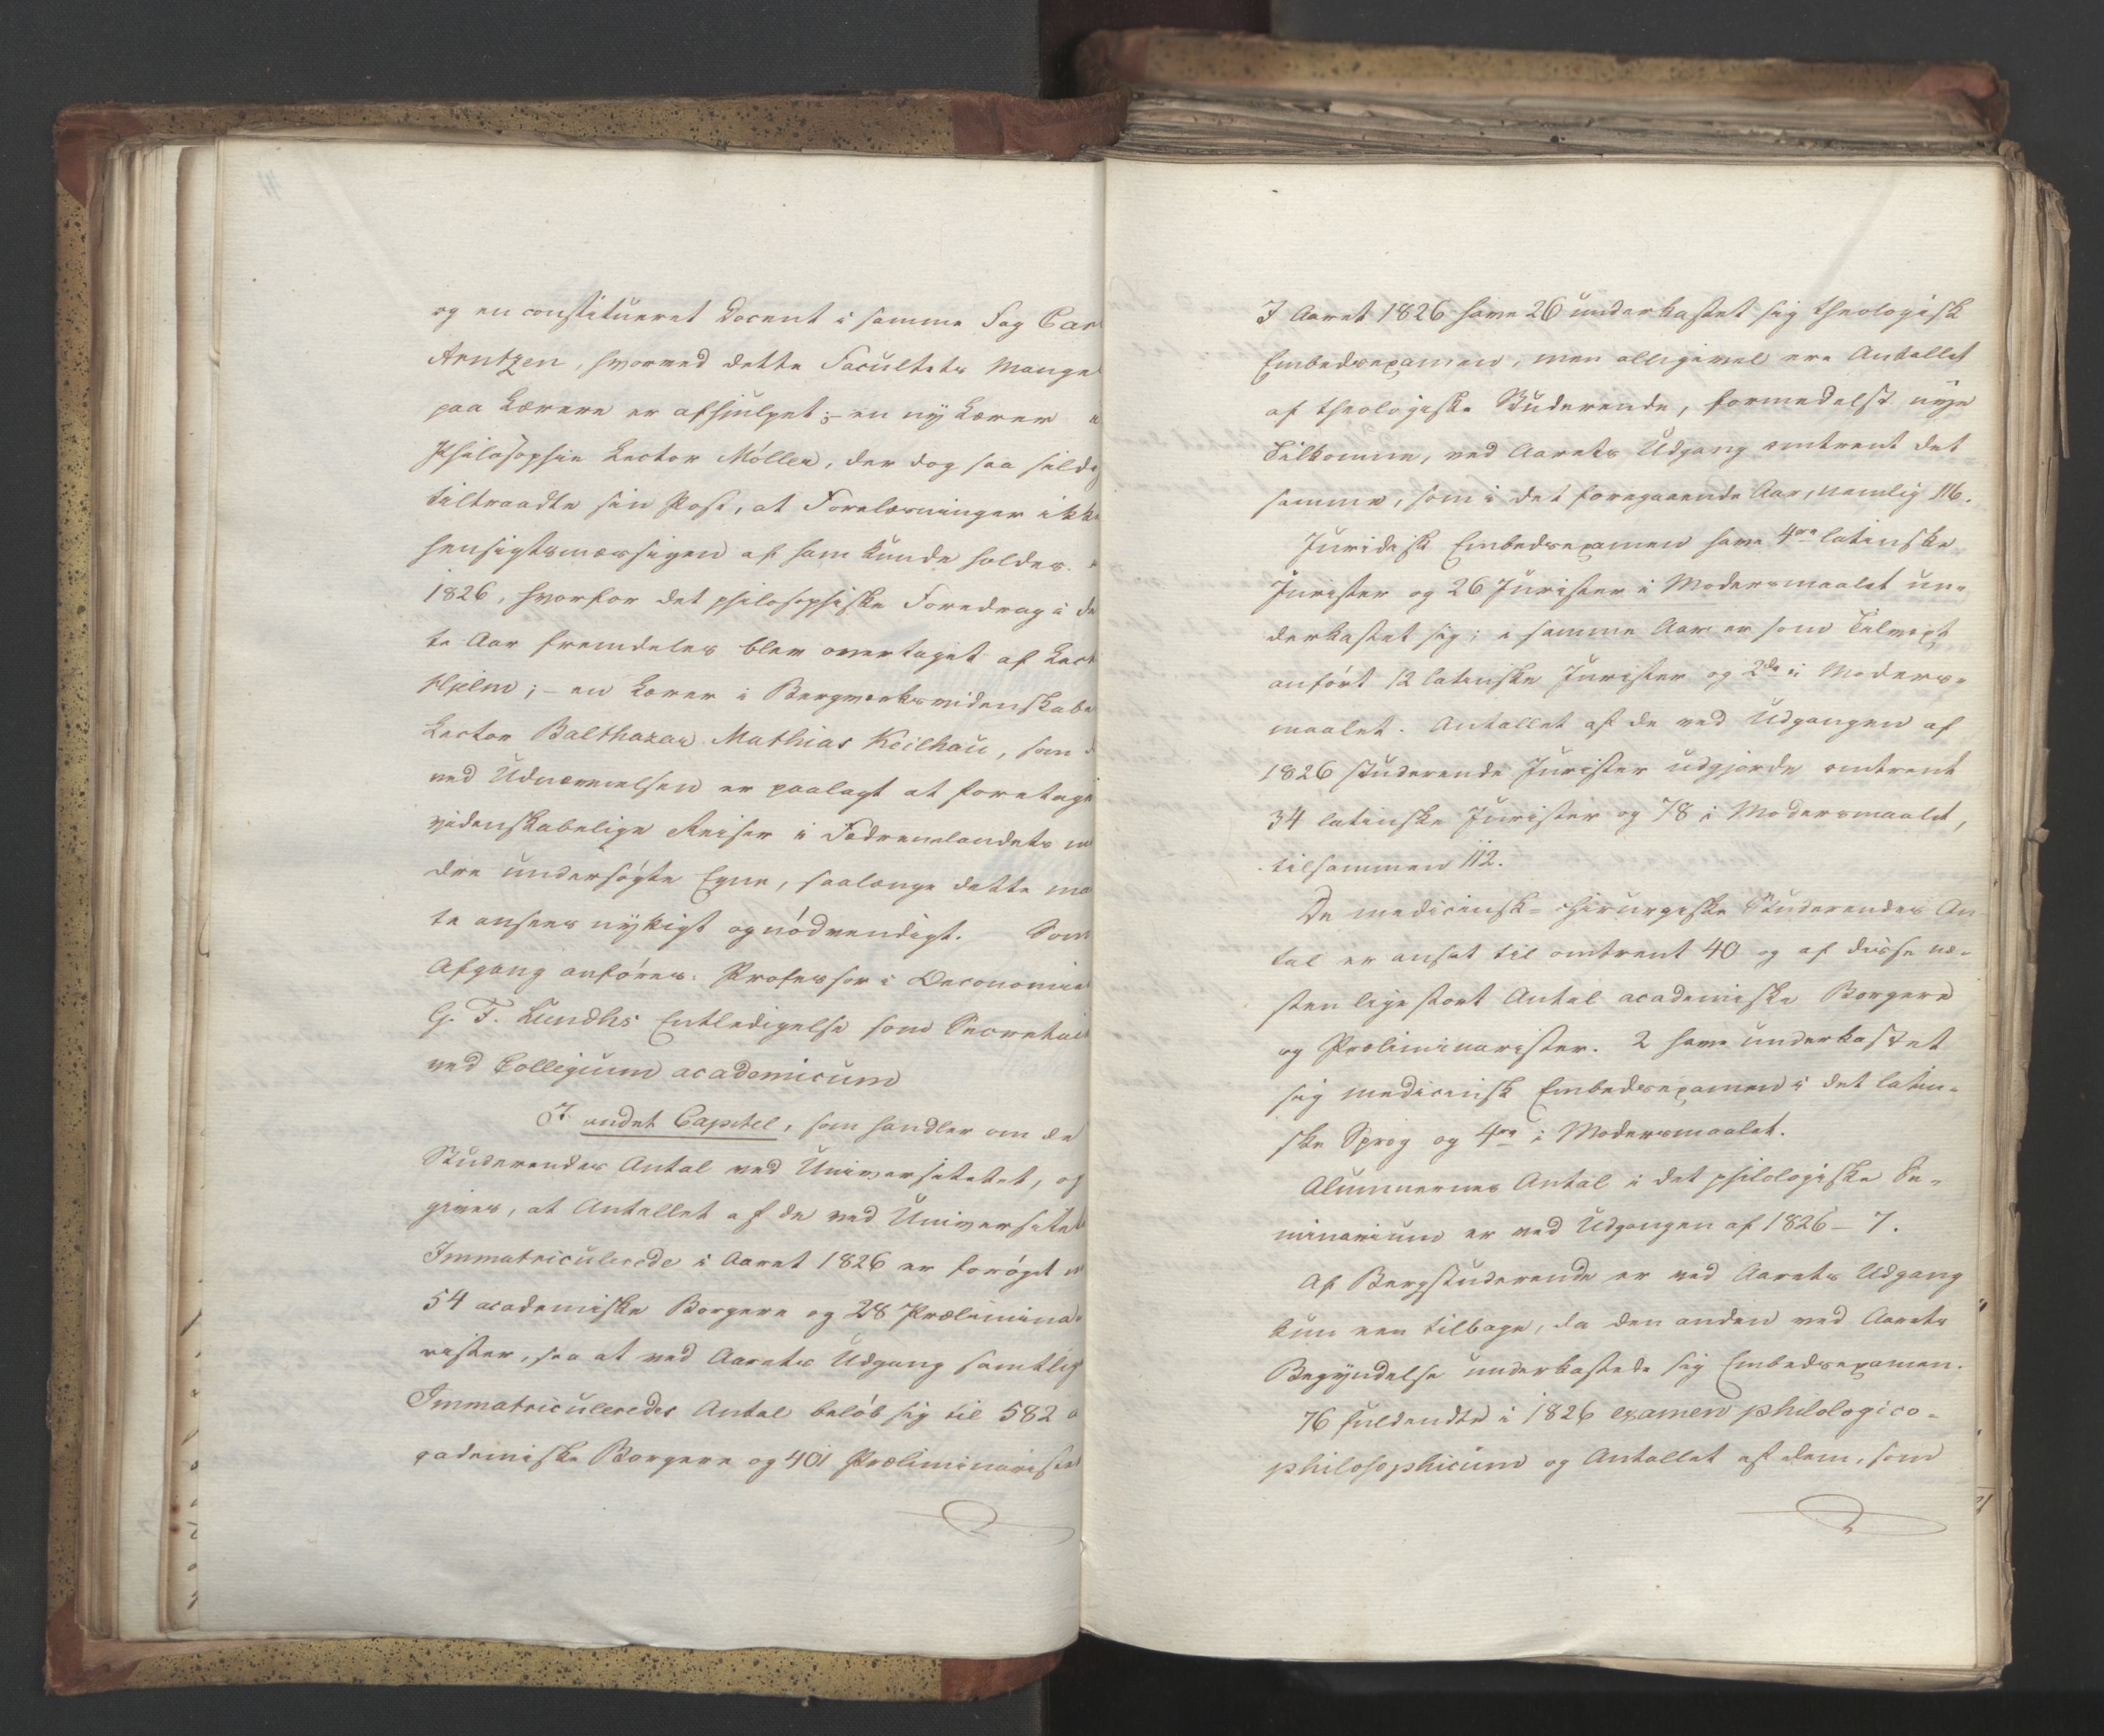 og en constitueret Docent i samme Fag Carl
Arntzen, hvorved dette Facultets Mangel
paa Lærere er afhjulpet; – en ny Lærer
Philosophie Lector Møller, der dog saa sildig
tiltraadte sin Post, at Forelæsninger ikke
hensigtsmæssigen af ham kunde holdes
1826, hvorfor det philosophiske Foredrag i det
te Aar fremdeles blev overtaget af Lect
Hjelm; – en Lærer i Bergverksvidenskabe
Lector Balthazar Mathias Keilhau, som
ved Udnævnelsen er paalagt at foretage
videnskabelige Reiser i Fædrenelandets min
dre undersøgte Egne, saalænge dette maat
te ansees nyttigt og nødvendigt. Som
Afgang anføres: Professor i Oeconomie
G. F. Lundhs Entledigelse som Secretair
ved Collegium academicum
I andet Capitel, som handler om de
Studerendes Antal ved Universitetet, op
gives, at Antallet af de ved Universitetet
Immatriculerede i Aaret 1826 er forøget
54 academiske Borgere og 28 Præliminа
rister, saa at ved Aarets Udgang samtlige
Immatriculeredes Antal beløb sig til 582 a
cademiske Borgere og 401 Præliminarister
I Aaret 1826 have 26 underkastet sig theologisk
Embedsexamen, men alligevel ere Antallet
af theologiske Studerende, formedelst nye
Tilkomne, ved Aarets Udgang omtrent det
samme, som i det foregaaende Aar, nemlig 116.
Juridisk Embedsexamen have 4re latinske
Jurister og 26 Jurister i Modersmaalet un-
derkastet sig; i samme Aar er som Tilvext
anført 12 latinske Jurister og 2de i Moders-
maalet. Antallet af de ved Udgangen af
1826 studerende Jurister udgjorde omtrent
34 latinske Jurister og 78 i Modersmaalet,
tilsammen 112.
De medicinsk-chirurgiske Studerendes An
tal er ansat til omtrent 40 og af disse næ-
sten lige stort Antal academiske Borgere
og Præliminarister. 2 have underkastet
sig medicinsk Embedsexamen i det latin-
ske Sprog og 4re i Modersmaalet.
Alumnernes Antal i det philologiske Se-
minarium er ved Udgangen af 1826 – 7.
Af Bergstuderende er ved Aarets Udgang
kun een tilbage, da den anden ved Aarets
Begyndelse underkastede sig Embedsexamen.
76 fuldendte i 1826 examen philologico-
philosophicum og Antallet af dem, som